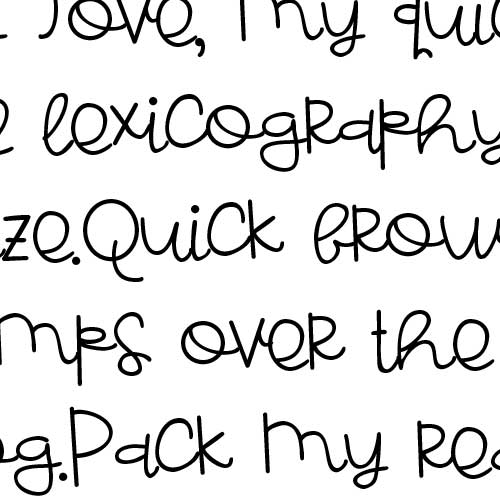 Jove, my qui
e lexicography
ze.Quick brow
mps over the
og.Pack my re